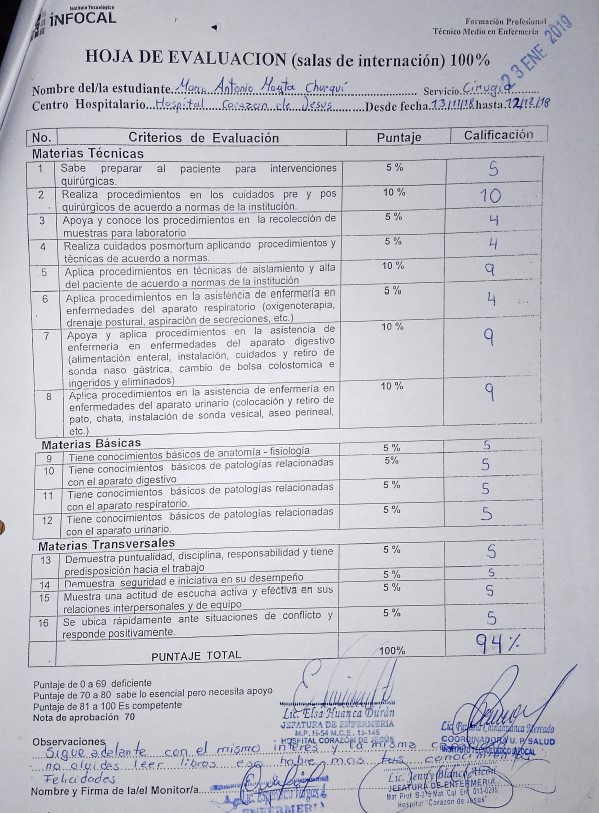 Instituto Tecnológico
iNFOCAL
Formación Profesional
Técnico Medio en Enfermería
23 ENE 2019
HOJA DE EVALUACION (salas de internación) 100%
Nombre del/la estudiante. Antonio Mayta Churqui Servicio. Cirugia
Centro Hospitalario...Hospital Corazon de Jesus Desde fecha.13/11/18 hasta 12/12/18
No. Criterios de Evaluación Puntaje Calificación
Materias Técnicas
1 Sabe preparar al paciente para intervenciones 5 % 5
quirúrgicas.
2 Realiza procedimientos en los cuidados pre y pos 10 % 10
quirúrgicos de acuerdo a normas de la institución.
3 Apoya y conoce los procedimientos en la recolección de 5 % 4
muestras para laboratorio
4 Realiza cuidados posmortum aplicando procedimientos y 5 % 4
técnicas de acuerdo a normas.
5 Aplica procedimientos en técnicas de aislamiento y alta 10 % 9
del paciente de acuerdo a normas de la institución
6 Aplica procedimientos en la asistencia de enfermería en 5 % 4
enfermedades del aparato respiratorio (oxigenoterapia,
drenaje postural, aspiración de secreciones, etc.)
7 Apoya y aplica procedimientos en la asistencia de 10 % 9
enfermería en enfermedades del aparato digestivo
(alimentación enteral, instalación, cuidados y retiro de
sonda naso gástrica, cambio de bolsa colostomica e
ingeridos y eliminados)
8 Aplica procedimientos en la asistencia de enfermería en 10 % 9
enfermedades del aparato urinario (colocación y retiro de
pato, chata, instalación de sonda vesical, aseo perineal,
etc.)
Materias Básicas
9 Tiene conocimientos básicos de anatomía - fisiología 5 % 5
10 Tiene conocimientos básicos de patologías relacionadas 5% 5
con el aparato digestivo
11 Tiene conocimientos básicos de patologías relacionadas 5 % 5
con el aparato respiratorio.
12 Tiene conocimientos básicos de patologías relacionadas 5 % 5
con el aparato urinario.
Materias Transversales
13 Demuestra puntualidad, disciplina, responsabilidad y tiene 5 % 5
predisposición hacia el trabajo
14 Demuestra seguridad e iniciativa en su desempeño 5 % 5
15 Muestra una actitud de escucha activa y efectiva en sus 5 % 5
relaciones interpersonales y de equipo
16 Se ubica rápidamente ante situaciones de conflicto y 5 % 5
responde positivamente.
PUNTAJE TOTAL 100% 94%
Puntaje de 0 a 69 deficiente
Puntaje de 70 a 80 sabe lo esencial pero necesita apoyo
Puntaje de 81 a 100 Es competente
Nota de aprobación 70
Lic. Elsa Huanca Durán
JEFATURA DE ENFERMERIA
M.P. H-54 M.C.E. 13-145
HOSPITAL CORAZÓN DE JESÚS
Lic. Mercado
COORDINADORA U.P. SALUD
INFOCAL
Observaciones
Sigue adelante con el mismo interes y la misma
no olvides leer libros eso habre mas tus conocimientos
Felicidades
Nombre y Firma de la/el Monitor/a
ENFERMERIA
Lic. Jenny Blanco Alcón
JEFATURA DE ENFERMERIA
Hospital "Corazón de Jesús"